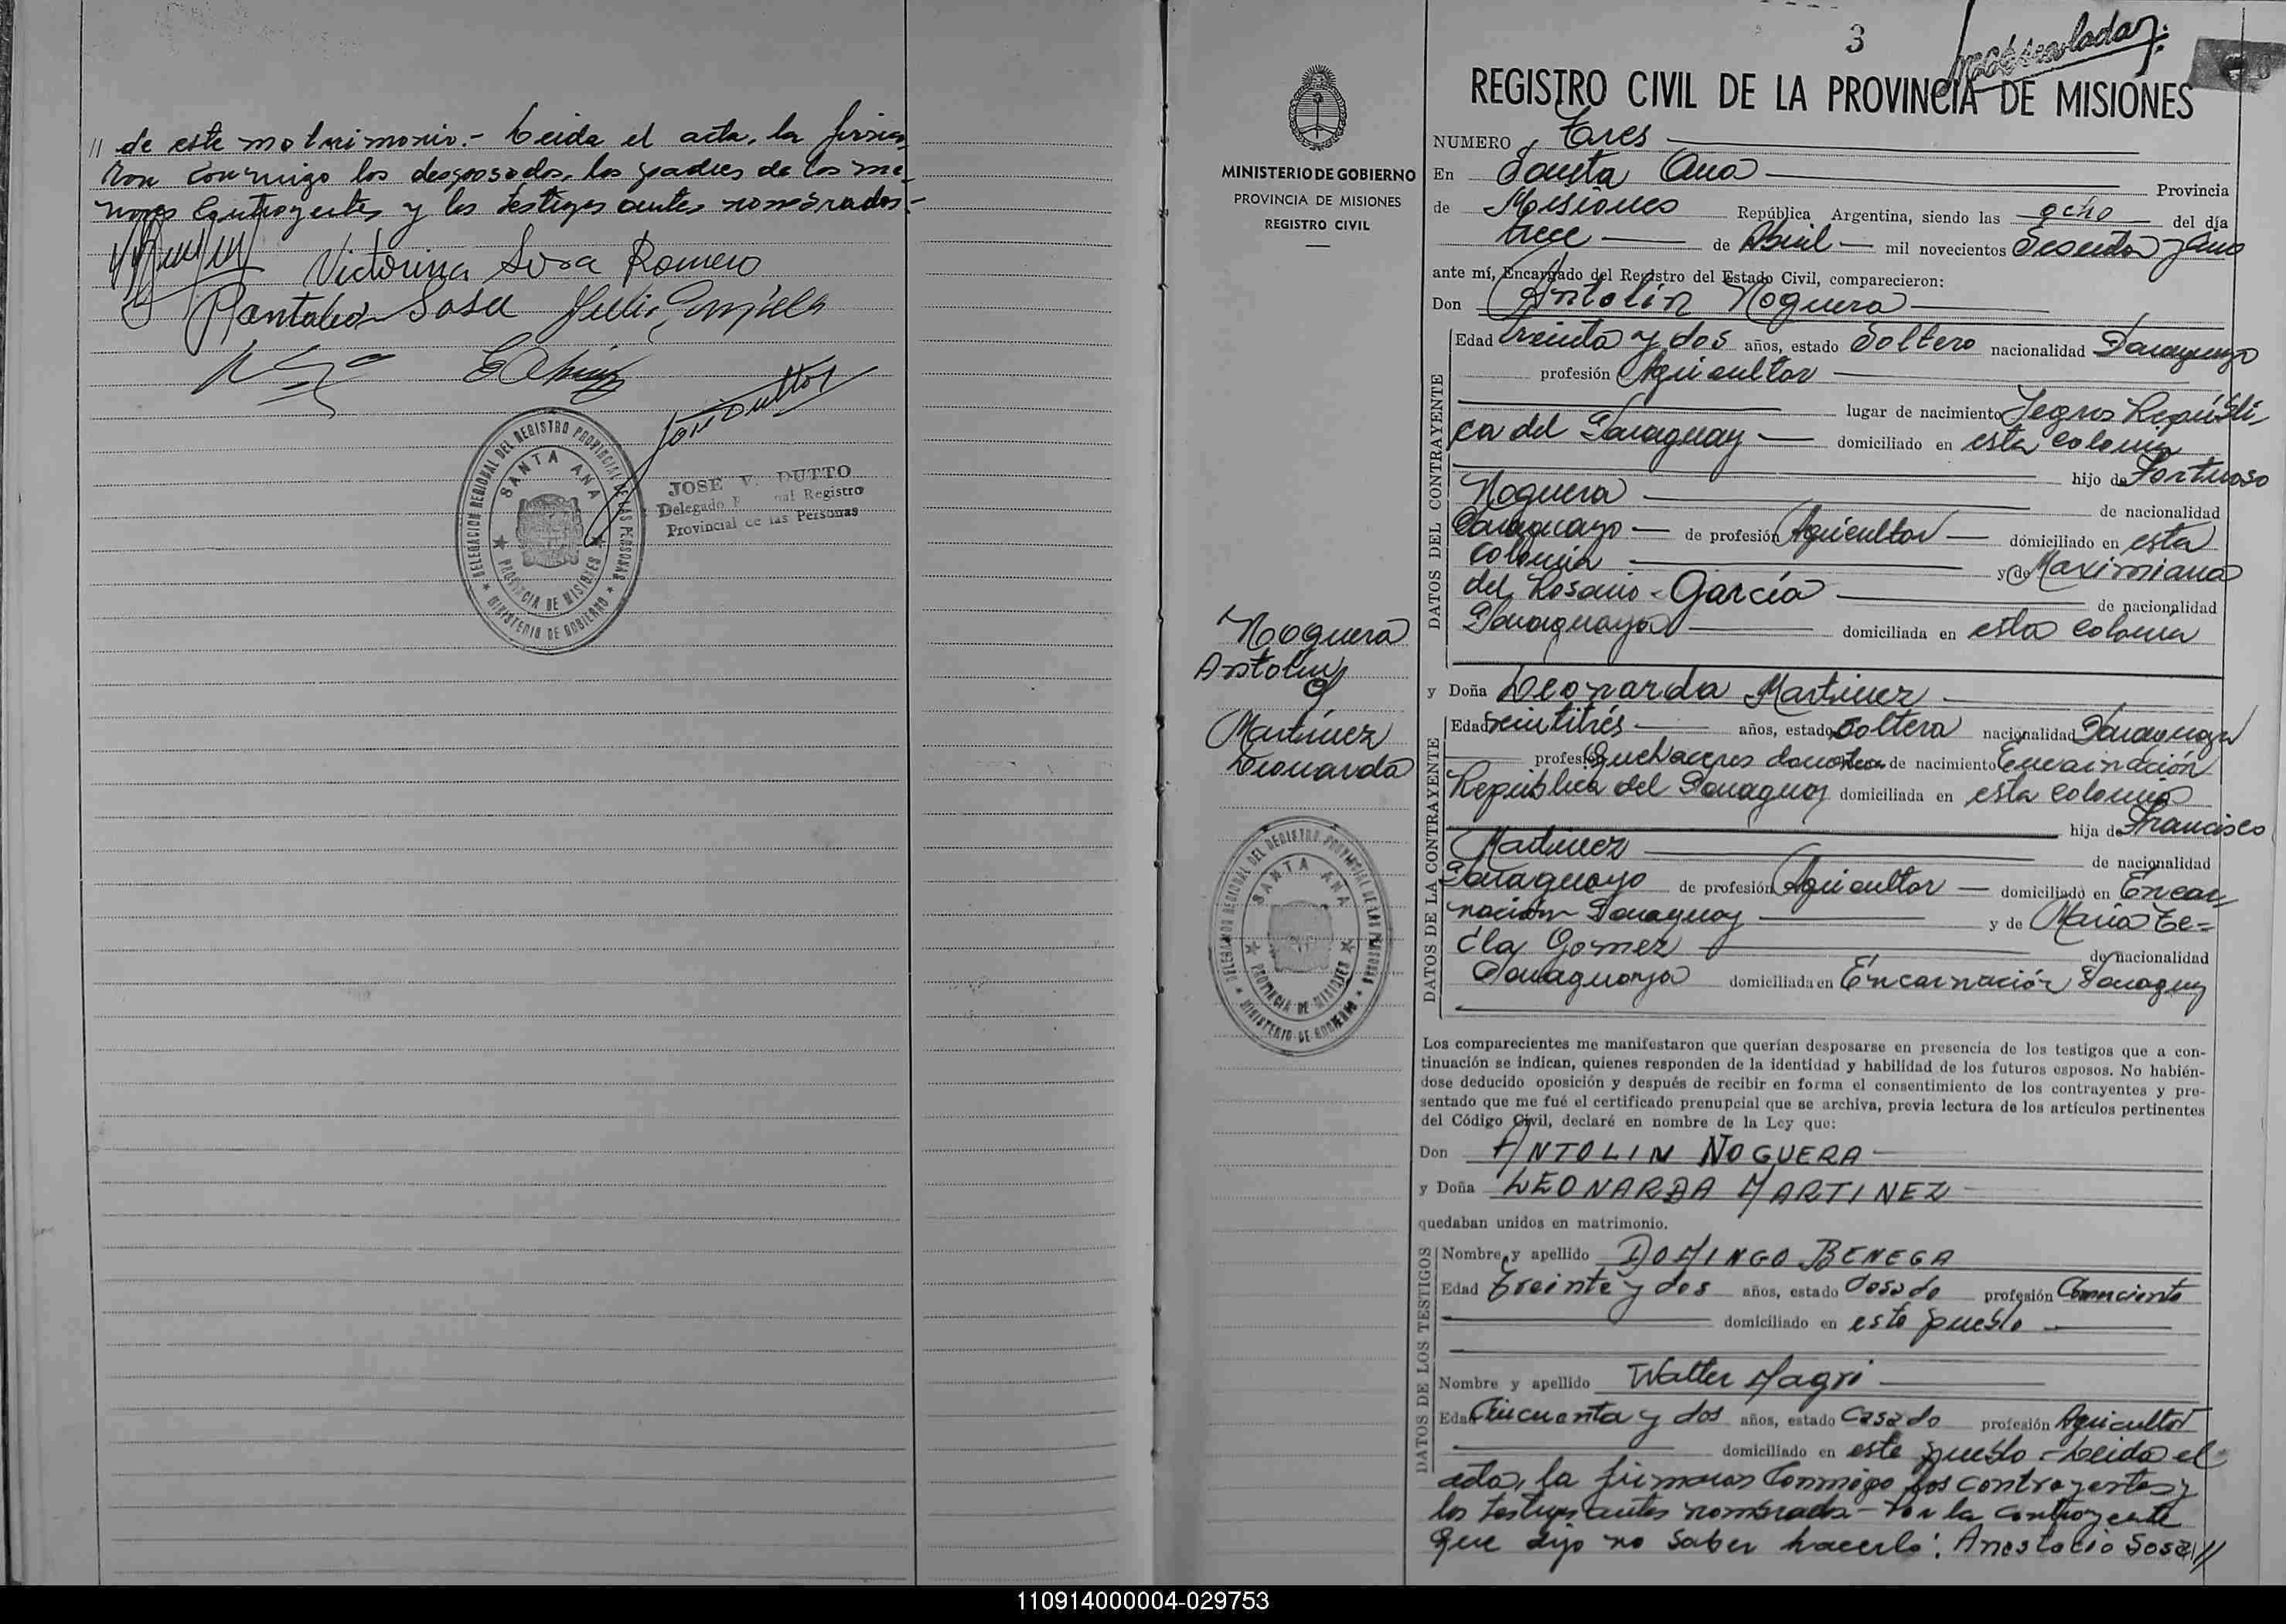 // de este matrimonio.- Leida el acta, la firma-
ron conmigo los desposados, los padres de los me-
nores contrayentes y los testigos antes nombrados.-
Victorina Sosa Romero
Pantaleon Sosa
DELEGACION REGIONAL DEL REGISTRO PROVINCIAL DE LAS PERSONAS
SANTA ANA
PROVINCIA DE MISIONES
MINISTERIO DE GOBIERNO
JOSE V. DUTTO
Delegado Registro
Provincial de las Personas
3
REGISTRO CIVIL DE LA PROVINCIA DE MISIONES
MINISTERIO DE GOBIERNO
PROVINCIA DE MISIONES
REGISTRO CIVIL
NUMERO Tres
En Santa Ana Provincia
de Misiones República Argentina, siendo las ocho del día
trece de Abril mil novecientos Sesenta y uno
ante mí, Encargado del Registro del Estado Civil, comparecieron:
Don Antolín Noguera
DATOS DEL CONTRAYENTE
Edad treinta y dos años, estado Soltero nacionalidad Paraguayo
profesión Agricultor
lugar de nacimiento Jegros Repúbli-
ca del Paraguay domiciliado en esta colonia
hijo de Fortunoso
Noguera de nacionalidad
Paraguayo de profesión Agricultor domiciliado en esta
colonia y de Maximiana
del Rosario García de nacionalidad
Paraguaya domiciliada en esta colonia
Noguera
Antolin
y
Martinez
Leonarda
y Doña Leonarda Martinez
DATOS DE LA CONTRAYENTE
Edad Veintitrés años, estado Soltera nacionalidad Paraguaya
profesión Quehaceres domésticos de nacimiento Encarnación
República del Paraguay domiciliada en esta colonia
hija de Francisco
Martinez de nacionalidad
Paraguayo de profesión Agricultor domiciliado en Encar-
nación Paraguay y de Maria Te-
cla Gomez de nacionalidad
Paraguaya domiciliada en Encarnación Paraguay
DELEGACION REGIONAL DEL REGISTRO PROVINCIAL DE LAS PERSONAS
SANTA ANA
PROVINCIA DE MISIONES
MINISTERIO DE GOBIERNO
Los comparecientes me manifestaron que querían desposarse en presencia de los testigos que a con-
tinuación se indican, quienes responden de la identidad y habilidad de los futuros esposos. No habién-
dose deducido oposición y después de recibir en forma el consentimiento de los contrayentes y pre-
sentado que me fué el certificado prenupcial que se archiva, previa lectura de los artículos pertinentes
del Código Civil, declaré en nombre de la Ley que:
Don ANTOLIN NOGUERA
y Doña LEONARDA MARTINEZ
quedaban unidos en matrimonio.
DATOS DE LOS TESTIGOS
Nombre y apellido DOMINGO BENEGA
Edad treinta y dos años, estado casado profesión Comerciante
domiciliado en este pueblo
Nombre y apellido Walter Magri
Edad Cincuenta y dos años, estado casado profesión Agricultor
domiciliado en este pueblo - Leida el
acta, la firmaron conmigo los contrayentes y
los testigos antes nombrados - Por la contrayente
que dijo no saber hacerlo: Anastacio Sosa //
110914000004-029753